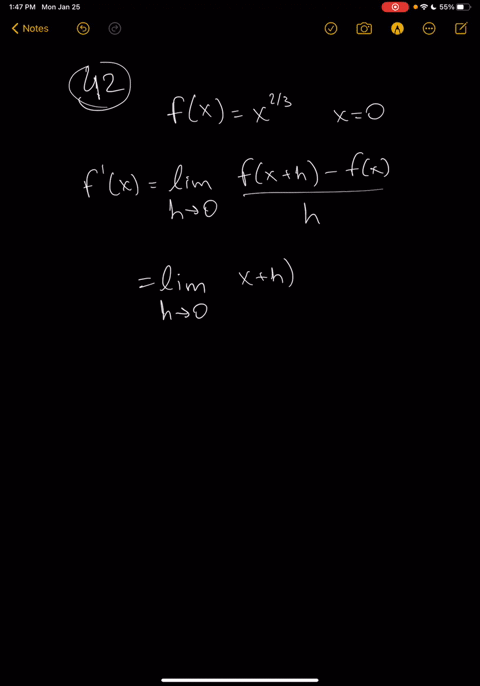 1:47 PM Mon Jan 25 55%
Notes
42
f(x) = x^{2/3} x=0
f'(x) = lim h→0 \frac{f(x+h) - f(x)}{h}
= lim h→0 x+h)